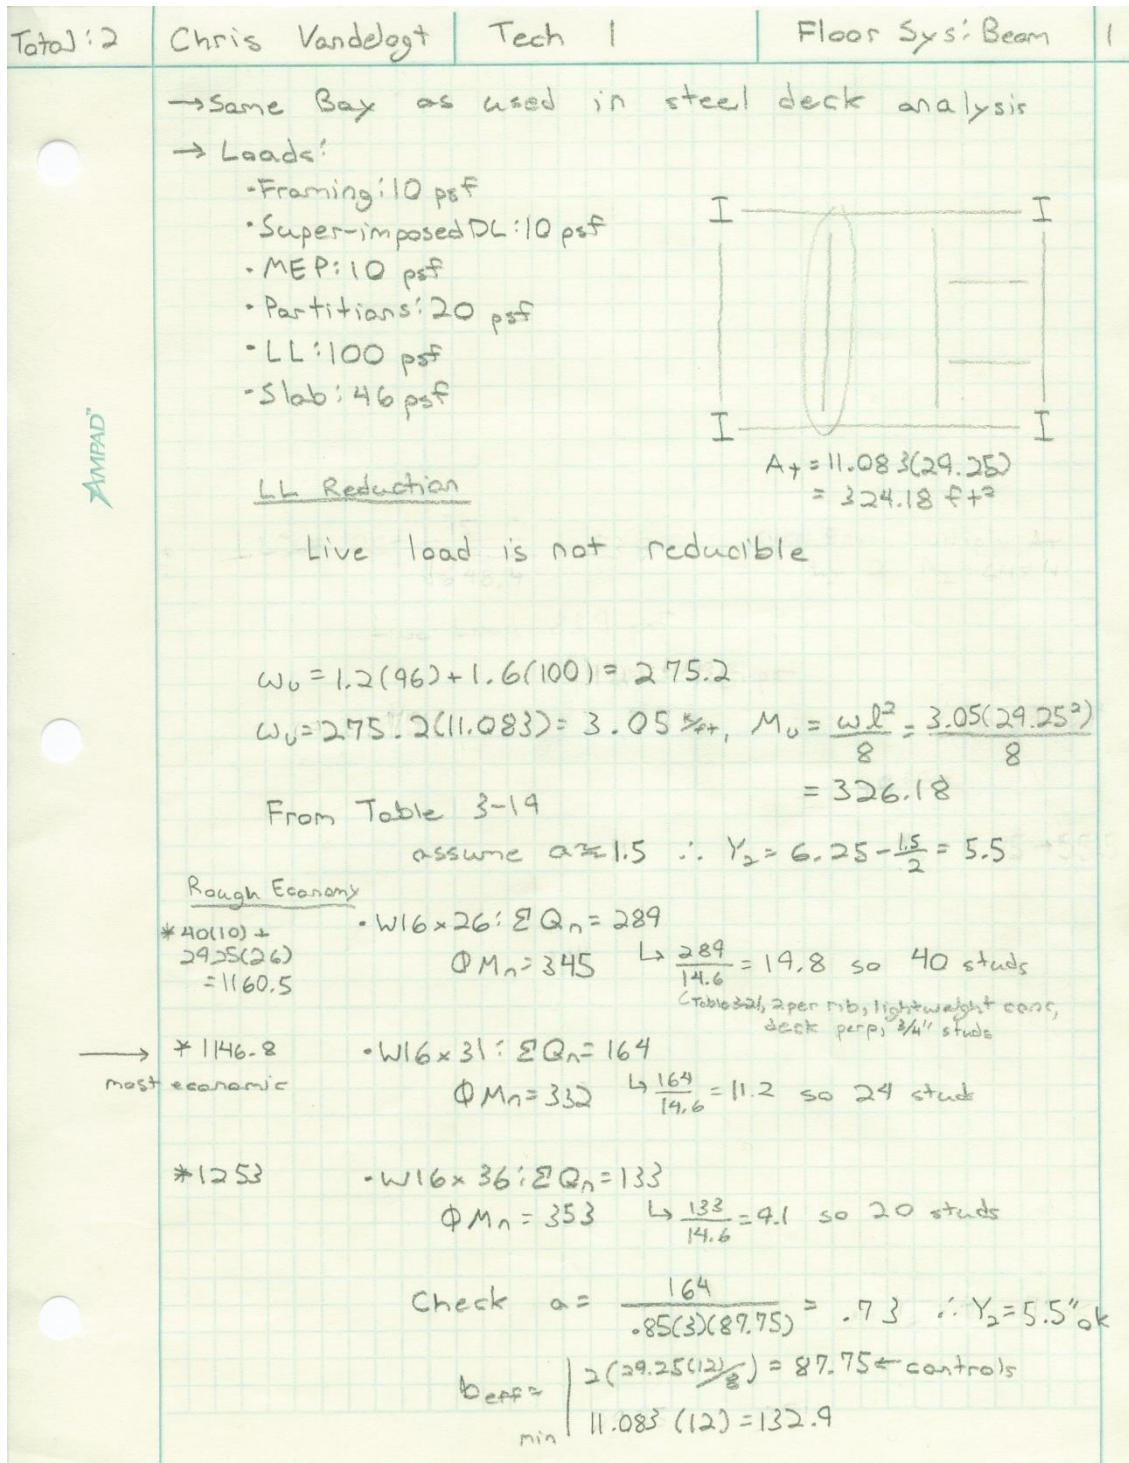 Total: 2 Chris Vandelogt Tech 1 Floor Sys: Beam 1
→ Same Bay as used in steel deck analysis
→ Loads:
·Framing: 10 psf
·Super-imposed DL: 10 psf
·MEP: 10 psf
·Partitions: 20 psf
·LL: 100 psf
·Slab: 46 psf
I I
I I
AMPAD™
At = 11.083(29.25)
= 324.18 ft²
LL Reduction
Live load is not reducible
ωu = 1.2(96) + 1.6(100) = 275.2
ωu = 275.2(11.083) = 3.05 k/ft, Mu = ωl²/8 = 3.05(29.25²)/8
= 326.18
From Table 3-19
assume a≈1.5 ∴ Y2 = 6.25 - 1.5/2 = 5.5
Rough Economy
·W16×26: ΣQn = 289
*40(10) +
29.25(26)
= 1160.5
ΦMn = 345 ↳ 289/14.6 = 19.8 so 40 studs
(Table 3-21, 2 per rib, lightweight conc,
deck perp, 3/4" studs
→ *1146.8 ·W16×31: ΣQn = 164
most economic
ΦMn = 332 ↳ 164/14.6 = 11.2 so 24 studs
*1253 ·W16×36: ΣQn = 133
ΦMn = 353 ↳ 133/14.6 = 9.1 so 20 studs
Check a = 164/.85(3)(87.75) = .73 ∴ Y2 = 5.5" ok
beff = min | 2(29.25(12)/8) = 87.75 ← controls
11.083 (12) = 132.9